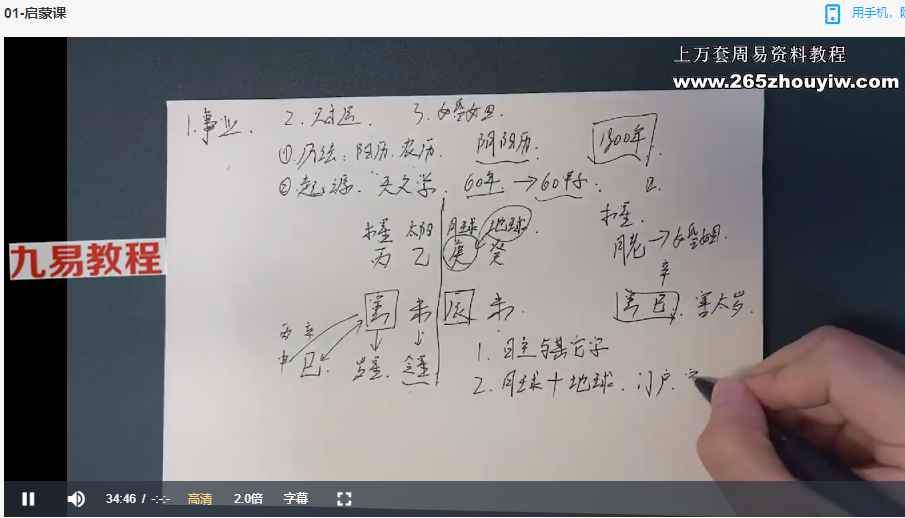 01-启蒙课
用手机、
上万套周易资料教程
www.265zhouyiw.com
1.事业. 2.财运. 3.婚姻.
①历法:阳历.农历. 阴阳历. 1800年
②起源.天文学. 60年→60甲子.
木星 太阳 月球 地球. 木星.
丙 乙 癸 月老→婚姻
九易教程 辛
未 未. 巳 害太岁.
丙辛
申 巳. 岁星.
1.日主与其它字
2.月球+地球.门户.
34:46 / -:-:-
高清
2.0倍
字幕